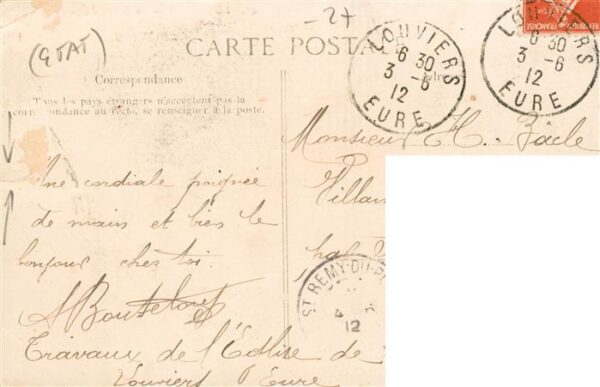 -27
(ETAT)
CARTE POSTA
Correspondance
Tous les pays étrangers n'acceptent pas la
correspondance au recto, se renseigner à la poste.
LOUVIERS
6 30
3 - 6
12
EURE
LOUVIERS
6 30
3 - 6
12
EURE
Monsieur H.
Villan
par
Une cordiale poignée
de main et bien le
bonjour chez toi.
Travaux de l'Église de
Louviers Eure
ST REMY-DU-P
4
12